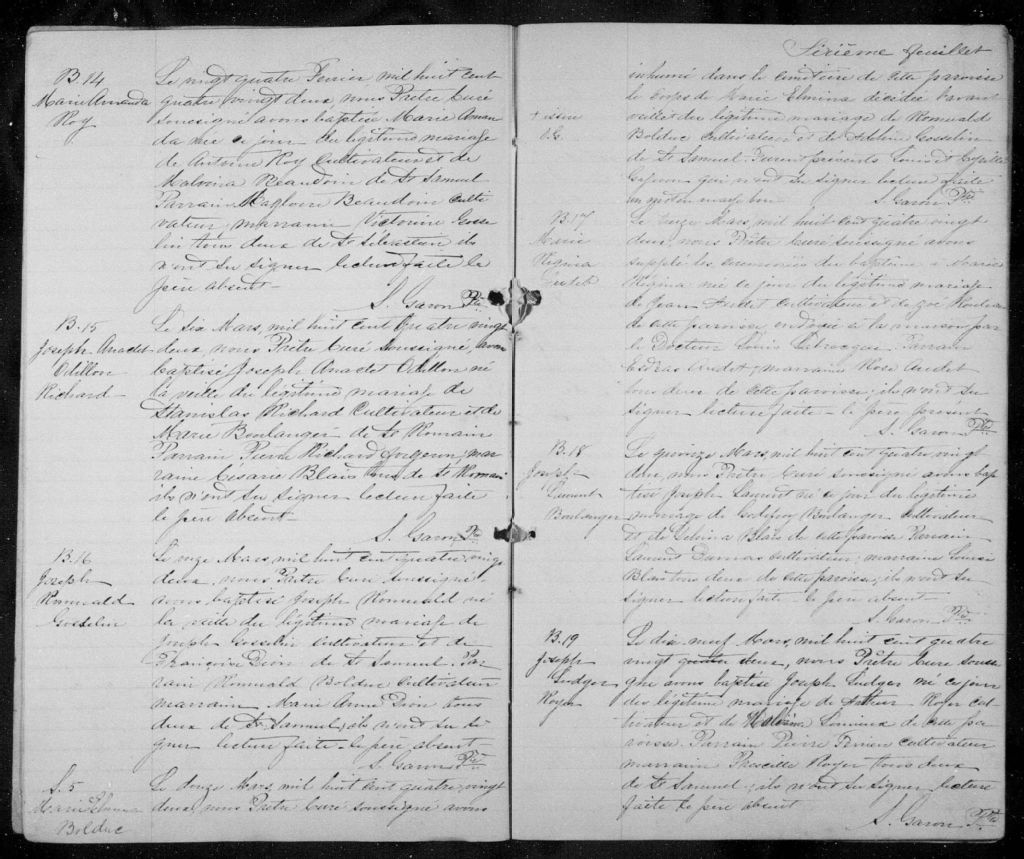 B.14
Marie Amanda
Roy
Le vingt quatre Fevrier mil huit cent
quatre vingt deux, nous Prêtre Curé
soussigné avons baptisé Marie Aman
da née ce jour du légitime mariage
de Antoine Roy Cultivateur et de
Malvina Beaudoin de St Samuel
Parrain Magloire Beaudoin culti
vateur, marraine Victorine Gosse
lin tous deux de St Sébastien ils
n'ont su signer lecture faite le
père absent—
S. Garon Ptre
B.15
Joseph Anaclet
Odillon
Richard
Le dix Mars, mil huit cent quatre vingt
deux, nous Prêtre Curé soussigné, avons
baptisé Joseph Anaclet Odillon né
la veille du légitime mariage de
Stanislas Richard Cultivateur et de
Marie Boulanger de St Romain
Parrain Pierre Richard forgeron, mar
raine Césarie Blais tous de St Romain
ils n'ont su signer lecture faite
le père absent—
S. Garon Ptre
B.16
Joseph
Romuald
Gosselin
Le onze Mars, mil huit cent quatre vingt
deux, nous Prêtre Curé soussigné
avons baptisé Joseph Romuald né
la veille du légitime mariage de
Joseph Gosselin cultivateur et de
Françoise Dion de St Samuel. Par
rain Romuald Bolduc Cultivateur
marraine Marie Anne Dion tous
deux de St Samuel, ils n'ont su si
gner lecture faite le père absent—
S. Garon Ptre
S.5
Marie Elmina
Bolduc
Le douze Mars, mil huit cent quatre vingt
deux, nous Prêtre Curé soussigné avons
Sixième feuillet
inhumé dans le cimetière de cette paroisse
le corps de Marie Elmina décédée l'avant
veille du légitime mariage de Romuald
Bolduc Cultivateur et de Gosselin
de St Samuel. Furent présents Louis et
qui n'ont su signer lecture faite
un mot
S. Garon Ptre
B.17
Marie
Régina
Audet
Le onze Mars, mil huit cent quatre vingt
deux, nous Prêtre Curé soussigné avons
suppléé les cérémonies du baptême à Marie
Régina née ce jour du légitime mariage
de Jean Audet cultivateur et de Zoé
de cette paroisse, ondoyée à la maison par
le Docteur Louis Parrain
Esdras Audet, marraine Rose Audet
tous deux de cette paroisse, ils n'ont su
signer lecture faite— le père présent
S. Garon Ptre
B.18
Joseph
Laurent
Boulanger
Le quinze Mars, mil huit cent quatre vingt
deux, nous Prêtre Curé soussigné avons bap
tisé Joseph Laurent né ce jour du légitime
mariage de Godefroy Boulanger cultivateur
et de Blais de cette paroisse Parrain
Laurent cultivateur, marraine Louise
Blais tous deux de cette paroisse, ils n'ont su
signer lecture faite le père absent—
S. Garon Ptre
B.19
Joseph
Ludger
Royer
Le dix neuf Mars, mil huit cent quatre
vingt quatre deux, nous Prêtre Curé souss
igné avons baptisé Joseph Ludger né ce jour
du légitime mariage de Royer cul
tivateur et de de cette pa
roisse. Parrain Pierre cultivateur
marraine Royer tous deux
de St Samuel, ils n'ont su signer lecture
faite le père absent
S. Garon Ptre